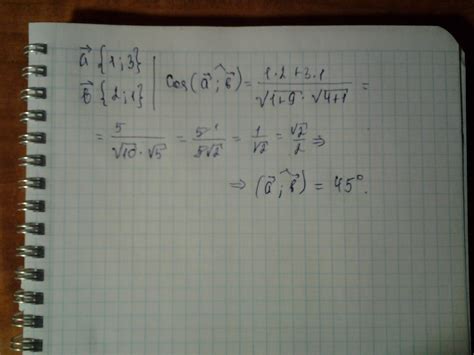 a⃗ {1;3} | cos(a⃗;^b⃗) = (1·2+3·1)/(√(1+9) · √(4+1)) =
b⃗ {2;1}
= 5/(√10·√5) = 5̸¹/(5̸√2) = 1/√2 = √2/2 ⇒
⇒ (a⃗;^b⃗) = 45°.